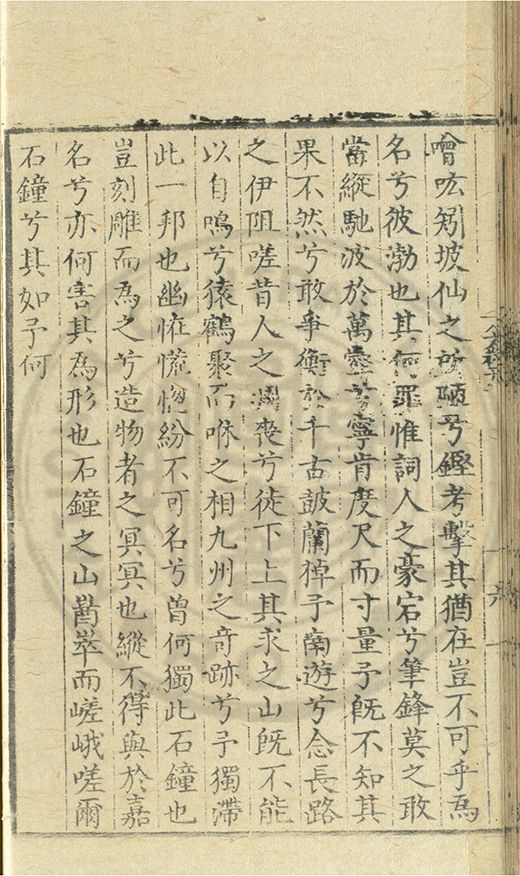 噌吰矧坡仙之所陋兮鏗考擊其猶在豈不可乎為
名兮彼渤也其何罪惟詞人之豪宕兮筆鋒莫之敢
當縱馳波於萬壑兮寧肯度尺而寸量予旣不知其
果不然兮敢爭衡於千古皷蘭棹予南遊兮念長路
之伊阻嗟昔人之凋喪兮徒下上其求之山旣不能
以自鳴兮猿鶴聚而咻之相九州之奇跡兮予獨滯
此一邦也幽怪慌惚紛不可名兮曽何獨此石鐘也
豈刻雕而為之兮造物者之冥冥也縱不得與於嘉
名兮亦何害其為形也石鐘之山萃而嵯峨嗟爾
石鐘兮其如予何
六